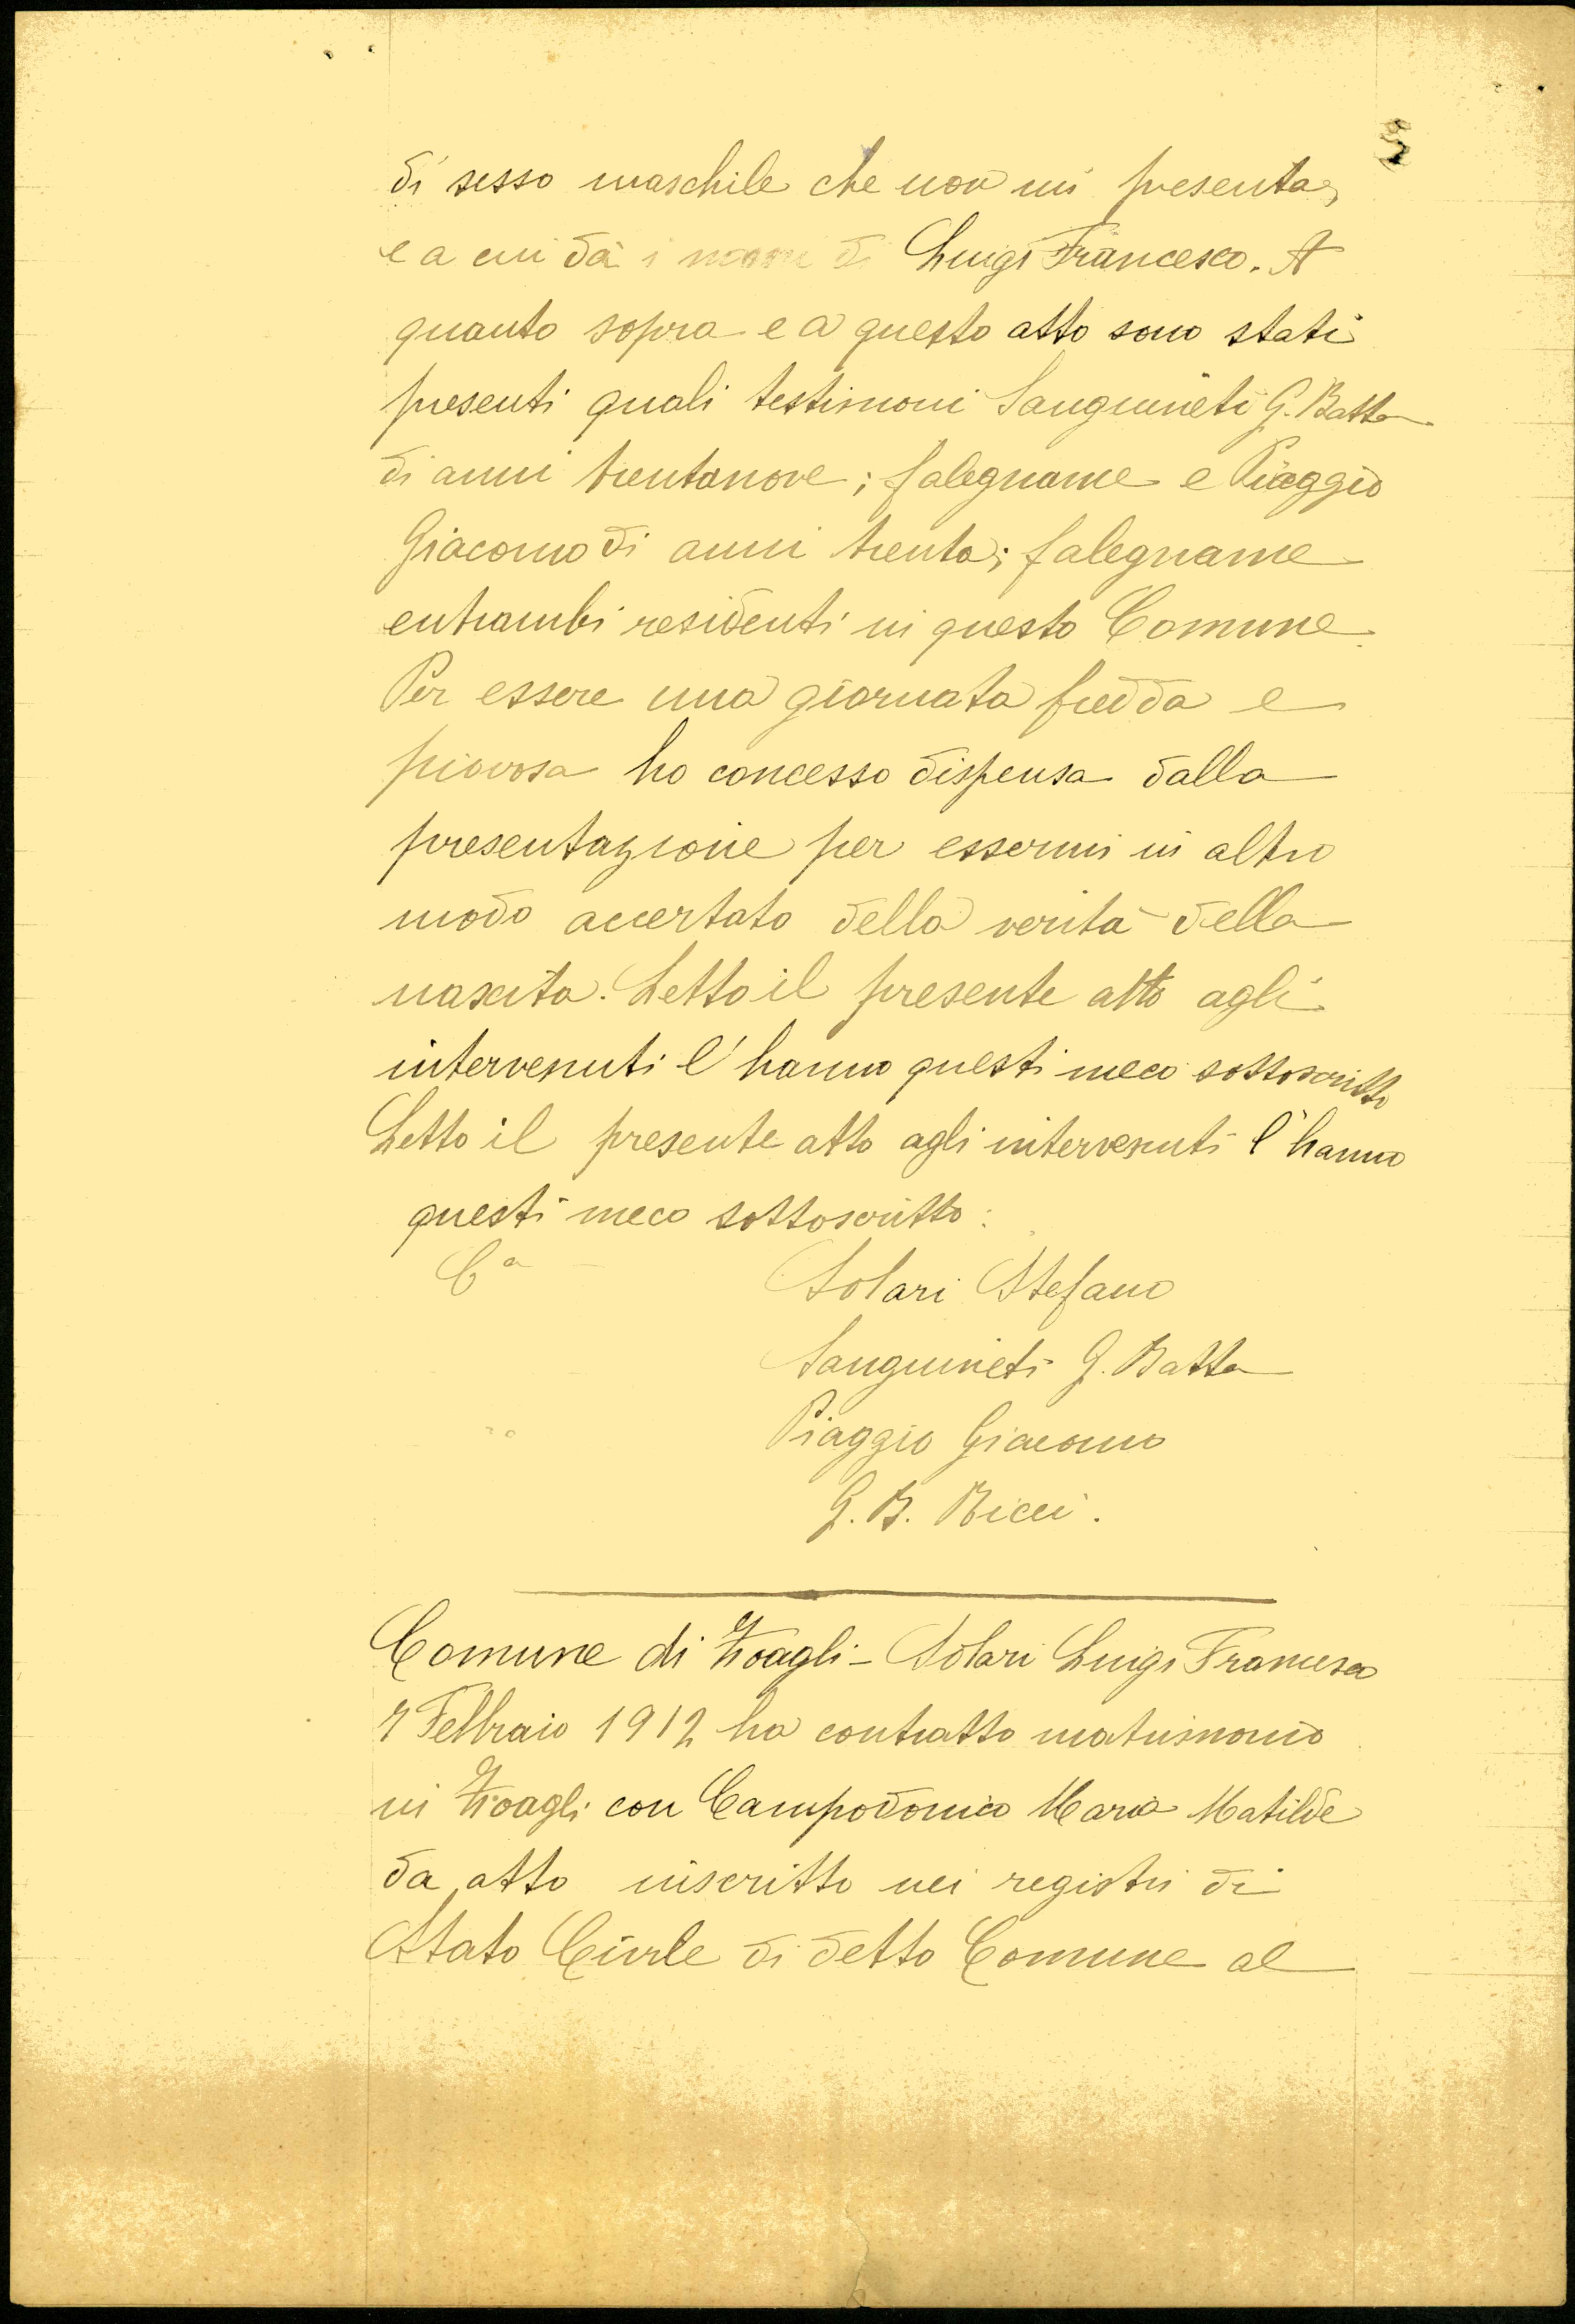 di sesso maschile che non mi presenta,
e a cui dà i nomi di Luigi Francesco. A
quanto sopra e a questo atto sono stati
presenti quali testimoni Sanguineti G. Batta
di anni trentanove; falegname e Piaggio
Giacomo di anni trenta; falegname
entrambi residenti in questo Comune.
Per essere una giornata fredda e
piovosa ho concesso dispensa dalla
presentazione per essermi in altro
modo accertato della verità della
nascita. Letto il presente atto agli
intervenuti l'hanno questi meco sottoscritto
Letto il presente atto agli intervenuti l'hanno
questi meco sottoscritto:
Solari Stefano
Sanguineti G. Batta
Piaggio Giacomo
G. B. Ricci.
Comune di Zoagli - Solari Luigi Francesco
7 Febbraio 1912 ha contratto matrimonio
in Zoagli con Campodonico Maria Matilde
da atto inscritto nei registri di
Stato Civile di detto Comune al